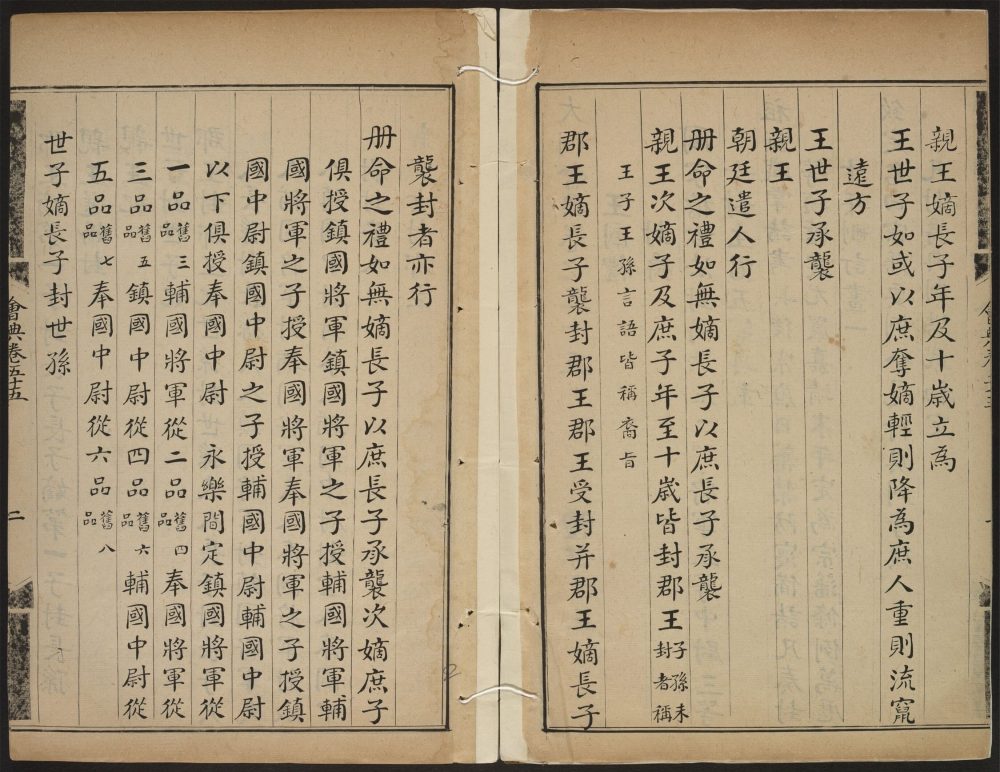 親王嫡長子年及十歲立為
王世子如或以庶奪嫡輕則降為庶人重則流竄
遠方
王世子承襲
親王
朝廷遣人行
册命之禮如無嫡長子以庶長子承襲
親王次嫡子及庶子年至十歲皆封郡王子孫未封者稱
王子王孫言語皆稱裔旨
郡王嫡長子襲封郡王郡王受封并郡王嫡長子
襲封者亦行
册命之禮如無嫡長子以庶長子承襲次嫡庶子
俱授鎮國將軍鎮國將軍之子授輔國將軍輔
國將軍之子授奉國將軍奉國將軍之子授鎮
國中尉鎮國中尉之子授輔國中尉輔國中尉
以下俱授奉國中尉 永樂間定鎮國將軍從
一品舊三品輔國將軍從二品舊四品奉國將軍從
三品舊五品鎮國中尉從四品舊六品輔國中尉從
五品舊七品奉國中尉從六品舊八品
世子嫡長子封世孫
會典卷五十五
二